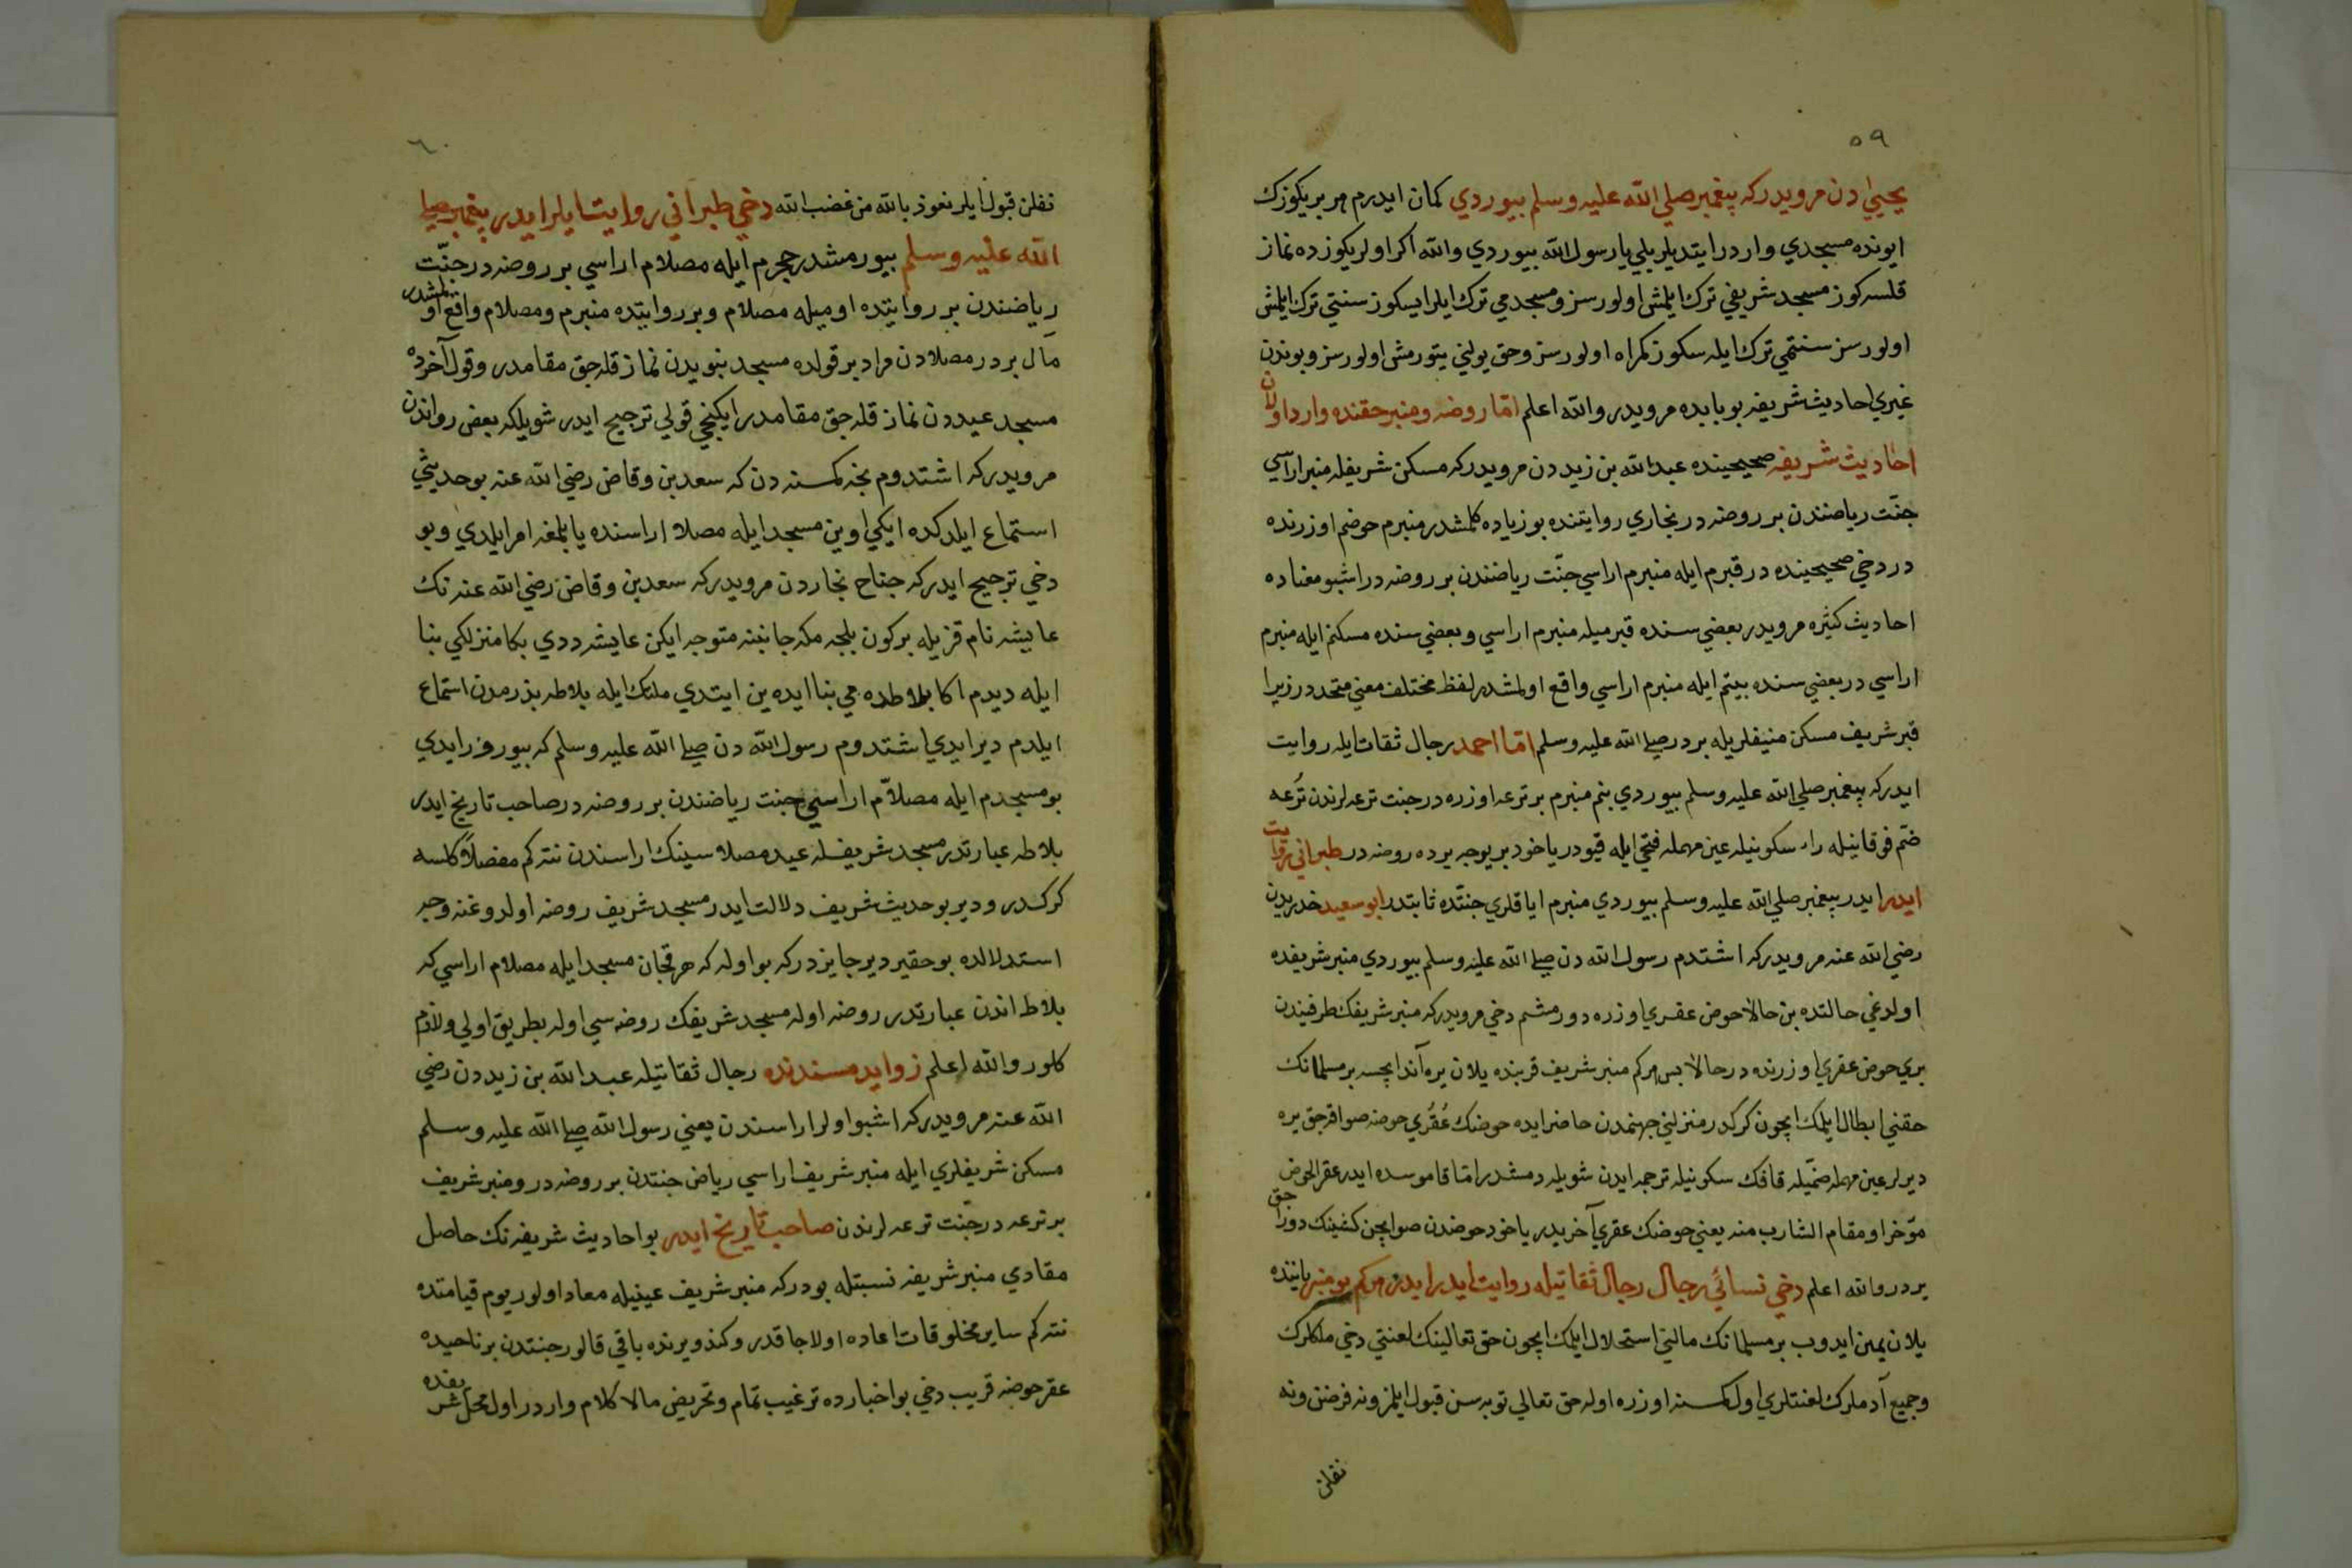 ٥٩
يحيى دن مرويدركه پيغمبر صلي الله عليه وسلم بيوردي كمان ايدرم هر بريكوزك
ايونده مسجدي واردر ايتديلر بلي يا رسول الله بيوردي والله اكر اولريكوزده نماز
قلسه كوز مسجد شريفي ترك ايلمش اولورسز ومسجدمي ترك ايلرايسكوز سنتي ترك ايلمش
اولورسز سنتمي ترك ايله سكوز كمراه اولورسز وحق يولني يتورمش اولورسز وبوندن
غيري احاديث شريفه بو بابده مرويدر والله اعلم امّا روضه ومنبر حقنده وارد اولان
احاديث شريفه صحيحينده عبد الله بن زيد دن مرويدركه مسكن شريفله منبر اراسي
جنّت رياضندن بر روضه در بخاري روايتنده بو زياده كلمشدر منبرم حوضم اوزرنده
در دخي صحيحينده در قبرم ايله منبرم اراسي جنّت رياضندن بر روضه در اشبو معناده
احاديث كثيره مرويدر بعضي سنده قبرميله منبرم اراسي وبعضي سنده مسكنم ايله منبرم
اراسي در بعضي سنده بيتم ايله منبرم اراسي واقع اولمشدر لفظ مختلف معني متحددر زيرا
قبر شريف مسكن منيفلريله بردر صلي الله عليه وسلم امّا احمد رجال ثقات ايله روايت
ايدركه پيغمبر صلي الله عليه وسلم بيوردي بنم منبرم بر ترعه اوزره در جنت ترعه لرندن تُرعه
ضمّ فوقانيله راء سكونيله عين مهمله فتحي ايله قپودر ياخود بر يوجه يرده روضه در طبراني روايت
ايدر ايدر پيغمبر صلي الله عليه وسلم بيوردي منبرم اياقلري جنّتده ثابتدر ابو سعيد خدريدن
رضي الله عنه مرويدركه اشتدم رسول الله دن صلي الله عليه وسلم بيوردي منبر شريفده
اولدغي حالتده بن حالا حوض عقري اوزره دورمشم دخي مرويدركه منبر شريفك طرفيندن
بري حوض عقري اوزرنده در حالا بس هركم منبر شريف قربنده يلان يره آند ايچسه بر مسلمانك
حقني ابطال ايلمك ايچون كركدر منزلني جهنمدن حاضر ايده حوضك عُقْري حوضه صو اقرجق يره
ديرلر عين مهمله ضمّيله قافك سكونيله ترجمه ايدن شويله دمشدر امّا قاموسده ايدر عقر الحوض
مؤخر او مقام الشارب منه يعني حوضك عقري آخريدر ياخود حوضدن صو ايچن كشينك دوراجق
يردر والله اعلم دخي نسائي رجال رجال ثقاتيله روايت ايدر ايدر هركم بو منبر ياننده
يلان يمين ايدوب بر مسلمانك مالني استحلال ايلمك ايچون حق تعالينك لعنتي دخي ملكلرك
وجميع آدملرك لعنتلري اول كمسنه اوزره اوله حق تعالي توبه سن قبول ايلمز ونه فرضن ونه
نفلن
٦٠
نفلن قبول ايلر نعوذ بالله من غضب الله دخي طبراني روايت ايلر ايدر پيغمبر صلي
الله عليه وسلم بيورمشدر حجرم ايله مصلام اراسي بر روضه در جنّت
رياضندن بر روايتده اوميله مصلام وبر روايتده منبرم ومصلام واقع اولمشدر
مآل بردر مصلادن مراد بر قولده مسجد نبويدن نماز قله جق مقامدر وقول آخرده
مسجد عيددن نماز قله جق مقامدر ايكنجي قولي ترجيح ايدر شويلكه بعض رواتدن
مرويدركه اشتدوم نجه كمسنه دن كه سعد بن وقاص رضي الله عنه بو حديثي
استماع ايلدكده ايكي اوين مسجد ايله مصلا اراسنده يابلمغه امر ايلدي وبو
دخي ترجيح ايدركه جناح نجاردن مرويدركه سعد بن وقاص رضي الله عنه نك
عايشه نام قزيله بركون بلجه مكه جانبنه متوجه ايكن عايشه ددي بكا منزلكي بنا
ايله ديدم اكا بلاطده مي بنا ايده ين ايتدي ملك ايله بلاطه بذرمدن استماع
ايلدم دير ايدي اشتدوم رسول الله دن صلي الله عليه وسلم كه بيورر ايدي
بو مسجدم ايله مصلاّم اراسي جنت رياضندن بر روضه در صاحب تاريخ ايدر
بلاطه عبارتدر مسجد شريفله عيد مصلاسينك اراسندن نته كم مفصلاً كلسه
كركدر ودير بو حديث شريف دلالت ايدر مسجد شريف روضه اولدوغنه وجه
استدلالده بو حقير دير جايزدركه بو اوله كه هر قچان مسجد ايله مصلام اراسي كه
بلاط اندن عبارتدر روضه اوله مسجد شريفك روضه سي اوله بطريق اولي ولازم
كلور والله اعلم زوايد مسندنده رجال ثقاتيله عبد الله بن زيد دن رضي
الله عنه مرويدركه اشبو اولر اراسندن يعني رسول الله صلي الله عليه وسلم
مسكن شريفلري ايله منبر شريف اراسي رياض جنتدن بر روضه در ومنبر شريف
بر ترعه در جنّت ترعه لرندن صاحب تاريخ ايدر بو احاديث شريفه نك حاصل
مفادي منبر شريفه نسبتله بودركه منبر شريف عينيله معاد اولور يوم قيامتده
نته كم ساير مخلوقات اعاده اولاجاقدر وكندويرنده باقي قالور جنتدن بر ناحيده
عقر حوضه قريب دخي بو اخبارده ترغيب تمام وتحريض مالا كلام واردر اول محل شريفده